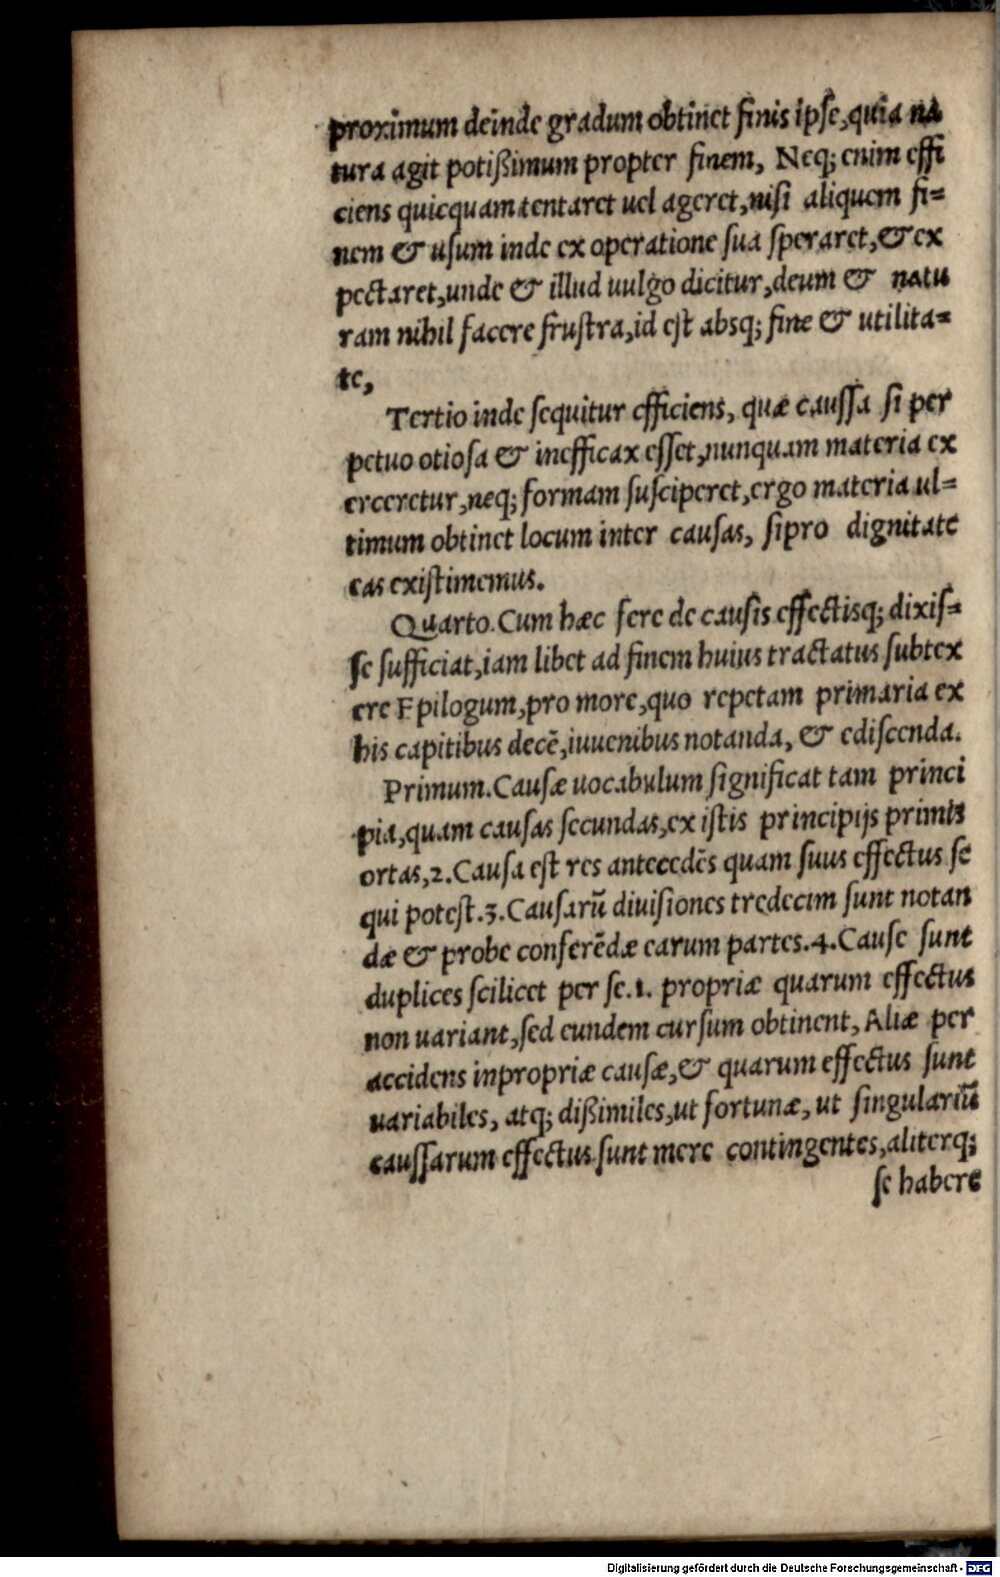 proximum deinde gradum obtinet finis ipſe,quia na
tura agit potißimum propter finem, Neq; enim effi
ciens quicquam tentaret uel ageret,niſi aliquem fi=
nem & uſum inde ex operatione ſua ſperaret,& ex
pectaret,unde & illud uulgo dicitur,deum & natu
ram nihil facere fruſtra,id eſt absq; fine & utilita=
te,
Tertio inde ſequitur efficiens, quæ cauſſa ſi per
petuo otioſa & inefficax eſſet,nunquam materia ex
erceretur,neq; formam ſuſciperet,ergo materia ul=
timum obtinet locum inter cauſas, ſipro dignitate
eas exiſtimemus.
Quarto.Cum hæc fere de cauſis effectisq; dixiſ=
ſe ſufficiat,iam libet ad finem huius tractatus ſubtex
ere Epilogum,pro more,quo repetam primaria ex
his capitibus decē,iuuenibus notanda, & ediſcenda.
Primum.Cauſæ uocabulum ſignificat tam princi
pia,quam cauſas ſecundas,ex iſtis principijs primis
ortas,2.Cauſa eſt res antecedēs quam ſuus effectus ſe
qui poteſt.3.Cauſarū diuiſiones tredecim ſunt notan
dæ & probe conferēdæ earum partes.4.Cauſe ſunt
duplices ſcilicet per ſe.1. propriæ quarum effectus
non uariant,ſed eundem curſum obtinent, Aliæ per
accidens inpropriæ cauſæ,& quarum effectus ſunt
uariabiles, atq; dißimiles,ut fortunæ, ut ſingulariū
cauſſarum effectus ſunt mere contingentes,aliterq;
ſe habere
Digitalisierung gefördert durch die Deutsche Forschungsgemeinschaft - DFG